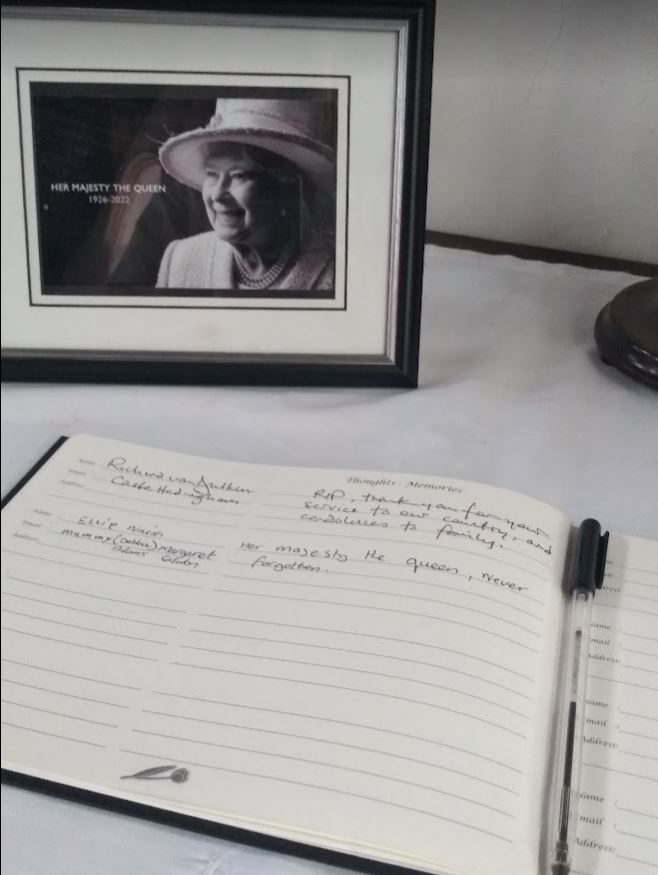 HER MAJESTY THE QUEEN
1926-2022
Thoughts - Memories
Name
Richard van
Email
Castle Hedingham
Address
RIP, thank you for your
service to our country, and
condolences to family.
Name
Ellie
Email
mummy (Debbie) Margaret
Address
Adams
Her majesty the queen, never
forgotten.
Name :
Email :
Address:
Name :
Email :
Address:
Name :
Email :
Address: